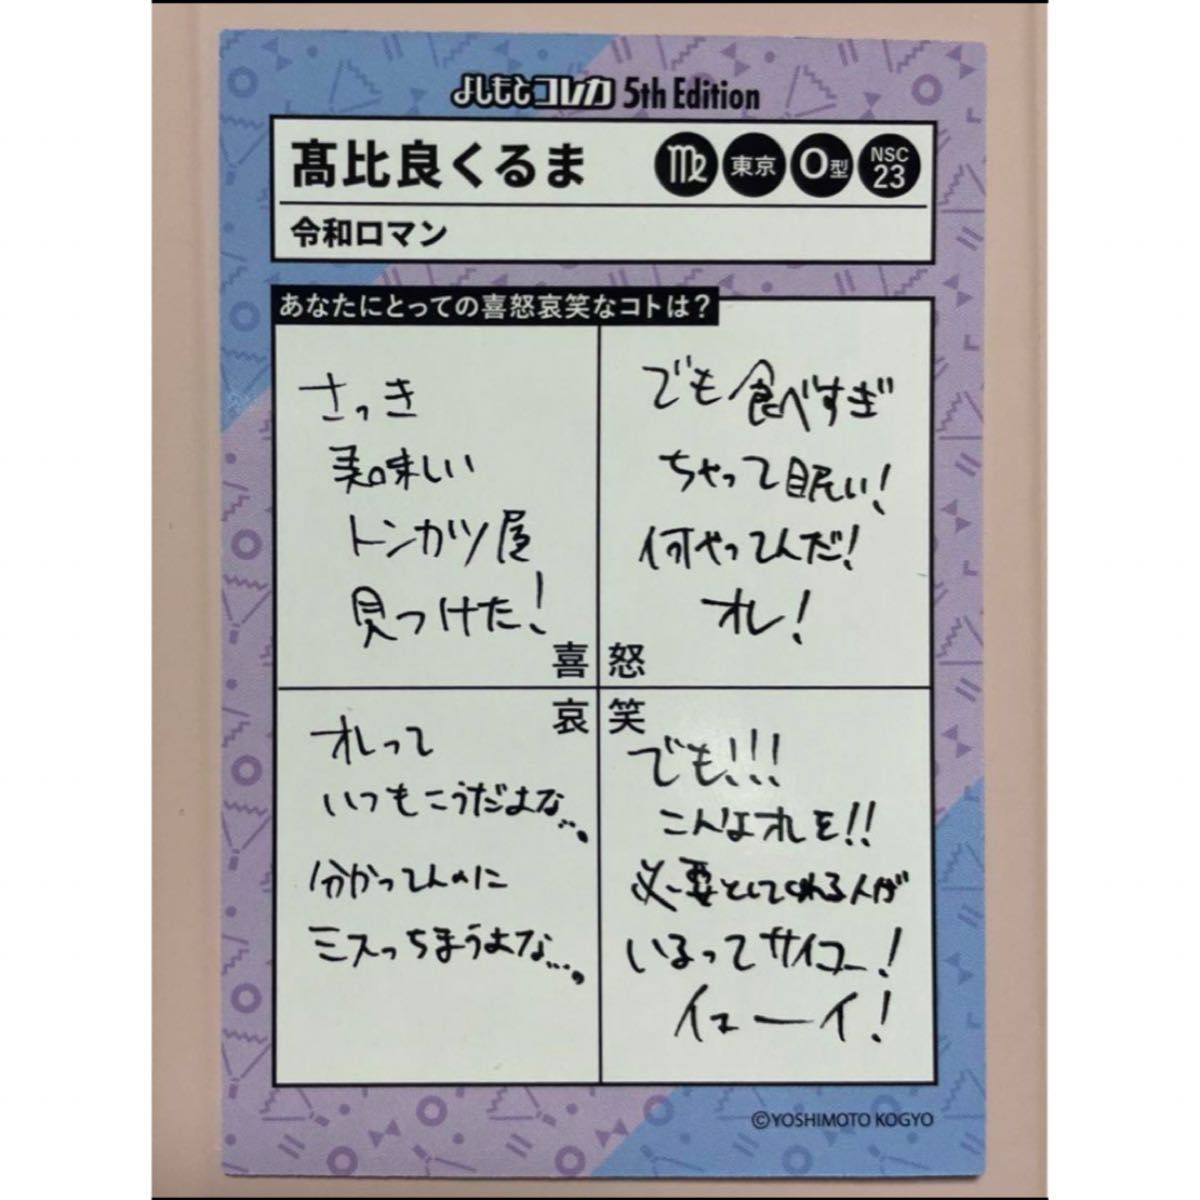 よしもとコレカ 5th Edition
髙比良くるま
♍ 東京 O型 NSC 23
令和ロマン
あなたにとっての喜怒哀笑なコトは？
さっき
美味しい
トンカツ屋
見つけた！
喜
でも食べすぎ
ちゃって眠い！
何やってんだ！
オレ！
怒
哀
オレって
いつもこうだよな…。
分かってんのに
ミスっちまうよな…。
笑
でも！！！
こんなオレを！！
必要としてくれる人が
いるってサイコー！
イェーイ！
©YOSHIMOTO KOGYO